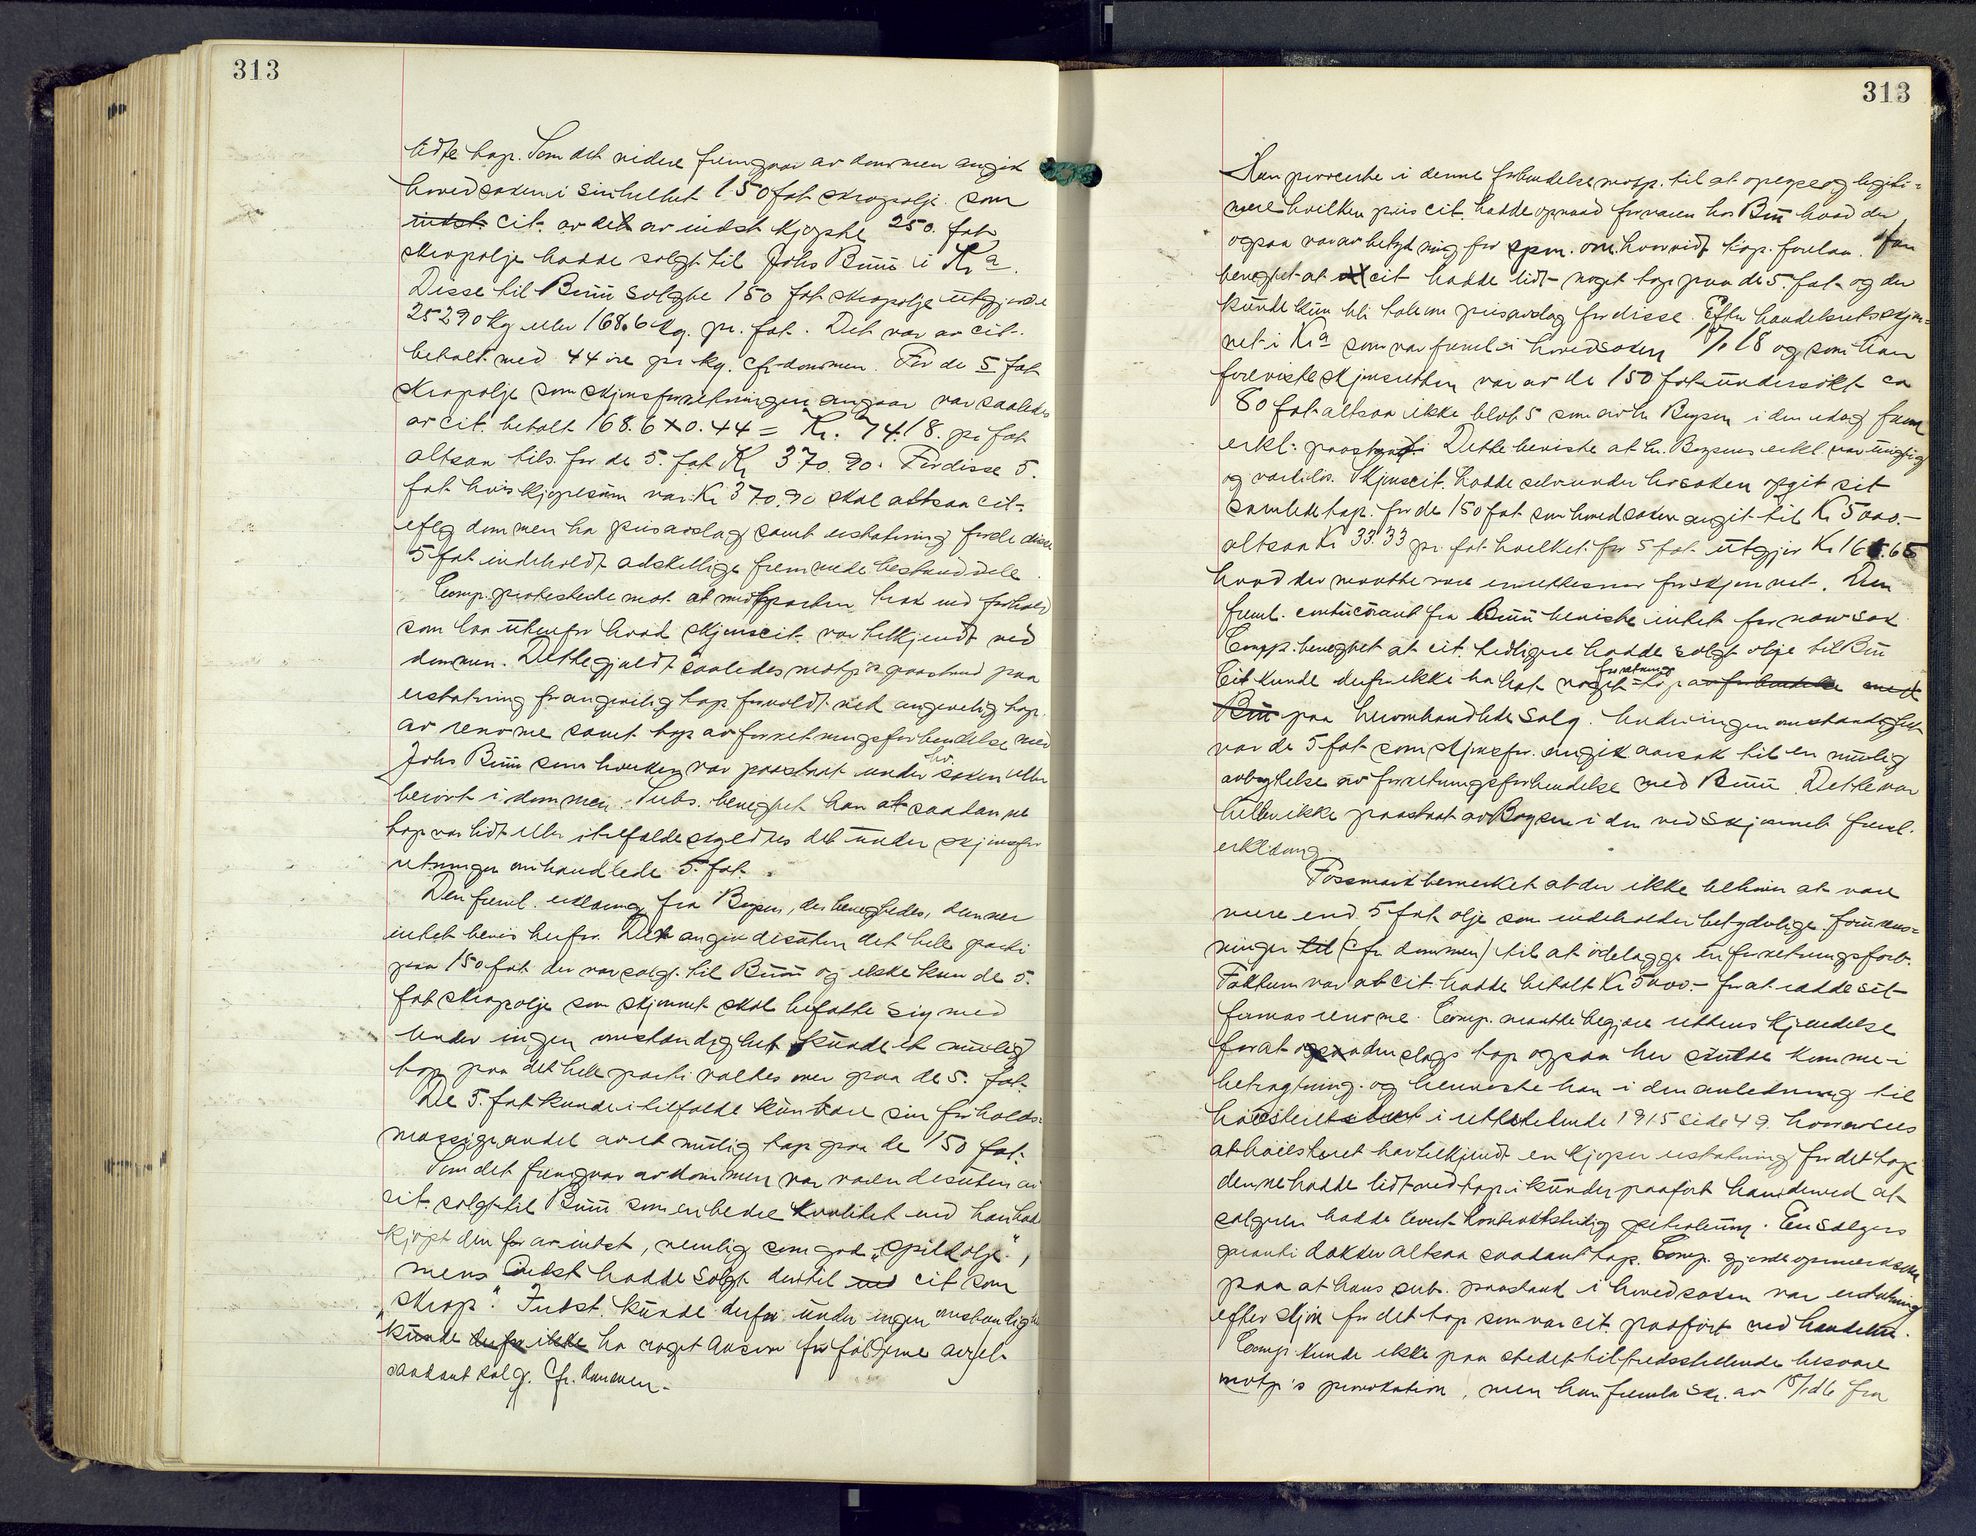 313
lidte tap. Som det videre fremgaar av dommen angik
hovedsaken i sin helhet 150 fat skrapolje som
indst. cit. av det av indst kjøpte 250 fat
skrapolje hadde solgt til Johs Buui i Kra.
Disse til Buui solgte 150 fat skrapolje utgjorde
25290 kg eller 168.6 kg. pr. fat. Det var av cit.
betalt med 44 øre pr kg. cfr dommen. For de 5 fat
skrapolje som skjønsforretningen angaar var saaledes
av cit. betalt 168.6 x 0.44 = Kr. 74.18. pr fat
altsaa tils. for de 5. fat Kr 370.90. For disse 5.
fat hvis kjøpesum var Kr 370.90 skal altsaa cit.
efter dommen ha prisavslag samt erstatning fordi disse
5 fat indeholdt adskillige fremmede bestanddele.
Comp. protesterte mot at motparten trak ind forhold
som laa utenfor hvad skjønscit. var tilkjendt ved
dommen. Dette gjaldt saaledes motp's paastand paa
erstatning for angivelig tap forvoldt ved angivelig tap
av renomme samt tap av forretningsforbindelse med
Johs Buui som hverken var paastaat under hr. saken eller
berørt i dommen. Subs. benegtet han at saadanne
tap var lidt eller i tilfælde skyldtes det under skjønsfor
retningen omhandlede 5. fat.
Den freml. erklæring fra Boysen, der benegtedes, danner
intet bevis herfor. Den angik desuten det hele parti
paa 150 fat der var solgt til Buui og ikke kun de 5.
fat skrapolje som skjønnet skal befatte sig med
Under ingen omstændighet kunde et mulig
tap paa det hele parti væltes over paa de 5. fat.
De 5. fat kunde i tilfælde kun bære sin forholds-
mæssige andel av et mulig tap paa de 150 fat.
Som det fremgaar av dommen var varen desuten av
cit. solgt til Buui som en bedre kvalitet end han hadde
kjøpt den for av indst, nemlig som god "spildolje",
mens Indst hadde solgt den til cit som
"skrap". Indst. kunde derfor under ingen omstændighet
kunde derfor ikke ha noget ansvar for følgerne av et
saadant salg. Cfr. dommen.-
313
Han provocerte i denne forbindelse motp. til at opgi og legiti-
mere hvilken pris cit. hadde opnaad for varen hos Buui hvad der
ogsaa var av betydning for spm. om hvorvidt tap. forelaa. Han
benegtet at cit hadde lidt noget tap paa de 5. fat og der
kunde kun bli tale om prisavslag for disse. Efter handelsretsskjøn-
net i Kra som var freml. i hovedsaken 18 og som han
foreviste skjønsretten var av de 150 fat undersøkt ca
80 fat altsaa ikke blot 5 som av hr. Boysen i den idag freml
erkl. paastaat. Dette beviste at hr. Boysens erkl. var uriktig
og værdiløs. Skjønscit. hadde selv under hr saken opgit sit
samlede tap. for de 150 fat som hovedsaken angik til Kr 5000.-
altsaa Kr 33.33 pr. fat hvilket for 5 fat utgjør Kr 166.65
hvad der maatte være for skjønnet. Den
freml. contucorant fra Buui beviste intet for nærv sak
Comp. benegtet at cit. tidligere hadde solgt olje til Buui
Cit kunde derfor ikke ha hat noget forretnings- tap av forbindelse med
Buui paa heromhandlede salg. Under ingen omstændighet
var de 5 fat som skjønsfor. angik aarsak til en mulig
avbrytelse av forretningsforbindelse med Buui. Dette var
heller ikke paastaat av Boysen i den ved skjønnet freml.
erklæring.
Fossmark bemerket at der ikke behøver at være
mere end 5 fat olje som indeholder betydelige forurens-
ninger til (cfr. dommen) til at ødelægge en forretningsforb.
Faktum var at cit. hadde betalt Kr 5000.- for at redde sit
firmas renome. Comp. maatte begjære rettens kjendelse
for at saadan slags tap ogsaa her skulde komme i
betragtning. og henviste han i den anledning til
høiesterets dom i retstidende 1915 side 49. hvorav sees
at høiesteret har tilkjendt en kjøper erstatning for det tap
denne hadde lidt ved tap i kunder paaført ham derved at
sælgeren hadde levert kontraktstridig petroleum. En sælgers
garanti dækker altsaa saadant tap. Comp. gjorde opmerksom
paa at hans sub. paastand i hovedsaken var erstatning
efter skjøn for det tap som var cit. paaført ved handelen.
Comp. kunde ikke paa stedet tilfredsstillende besvare
motp's provokation, men han fremla skr. av fra